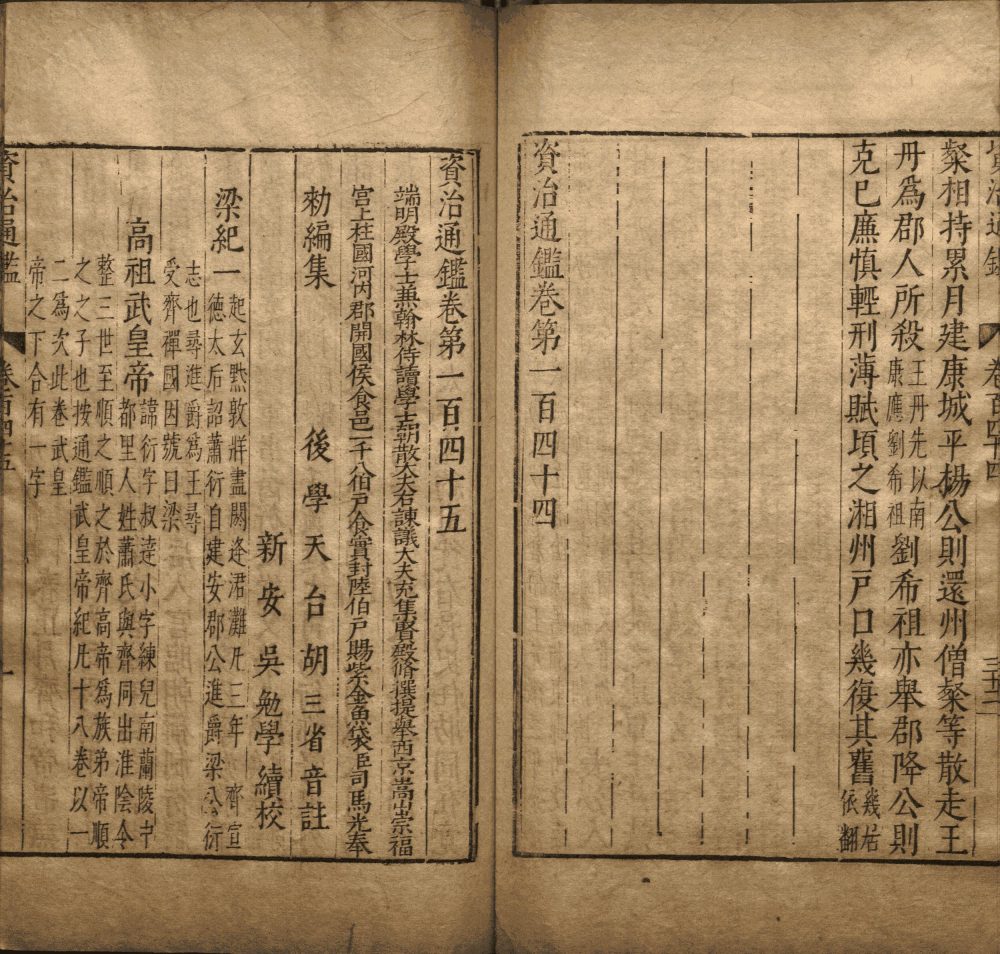 資治通鑑
卷百四十四
三十二
粲相持累月建康城平楊公則還州僧粲等散走王
丹爲郡人所殺王丹先以南
康應劉希祖劉希祖亦舉郡降公則
克已廉慎輕刑薄賦頃之湘州戸口幾復其舊幾居
依翻
資治通鑑卷第一百四十四
資治通鑑卷第一百四十五
端明殿學士兼翰林侍讀學士朝散大夫右諫議大夫充集賢殿脩撰提舉西京嵩山崇福
宫上柱國河内郡開國侯食邑一千八伯戸食實封陸伯戸賜紫金魚袋臣司馬光奉
勑編集
後學天台胡三省音註
新安吳勉學續校
梁紀一起玄黓敦牂盡閼逢涒灘凡三年齊宣
德太后詔蕭衍自建安郡公進爵梁公衍
志也尋進爵爲王尋
受齊禪國因號曰梁
高祖武皇帝諱衍字叔達小字練兒南蘭陵中
都里人姓蕭氏與齊同出淮陰令
整三世至順之順之於齊高帝爲族弟帝順
之之子也按通鑑武皇帝紀凡十八卷以一
二爲次此卷武皇
帝之下合有一字
資治通鑑
卷百四十五
一